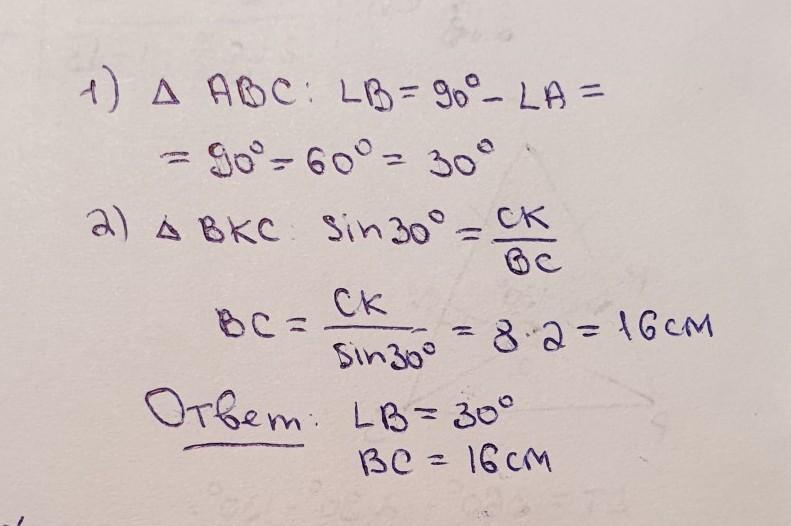 1) Δ ABC: ∠B = 90° - ∠A =
= 90° - 60° = 30°
2) Δ BKC: sin30° = CK/BC
BC = CK/sin30° = 8·2 = 16см
Ответ: ∠B = 30°
BC = 16см